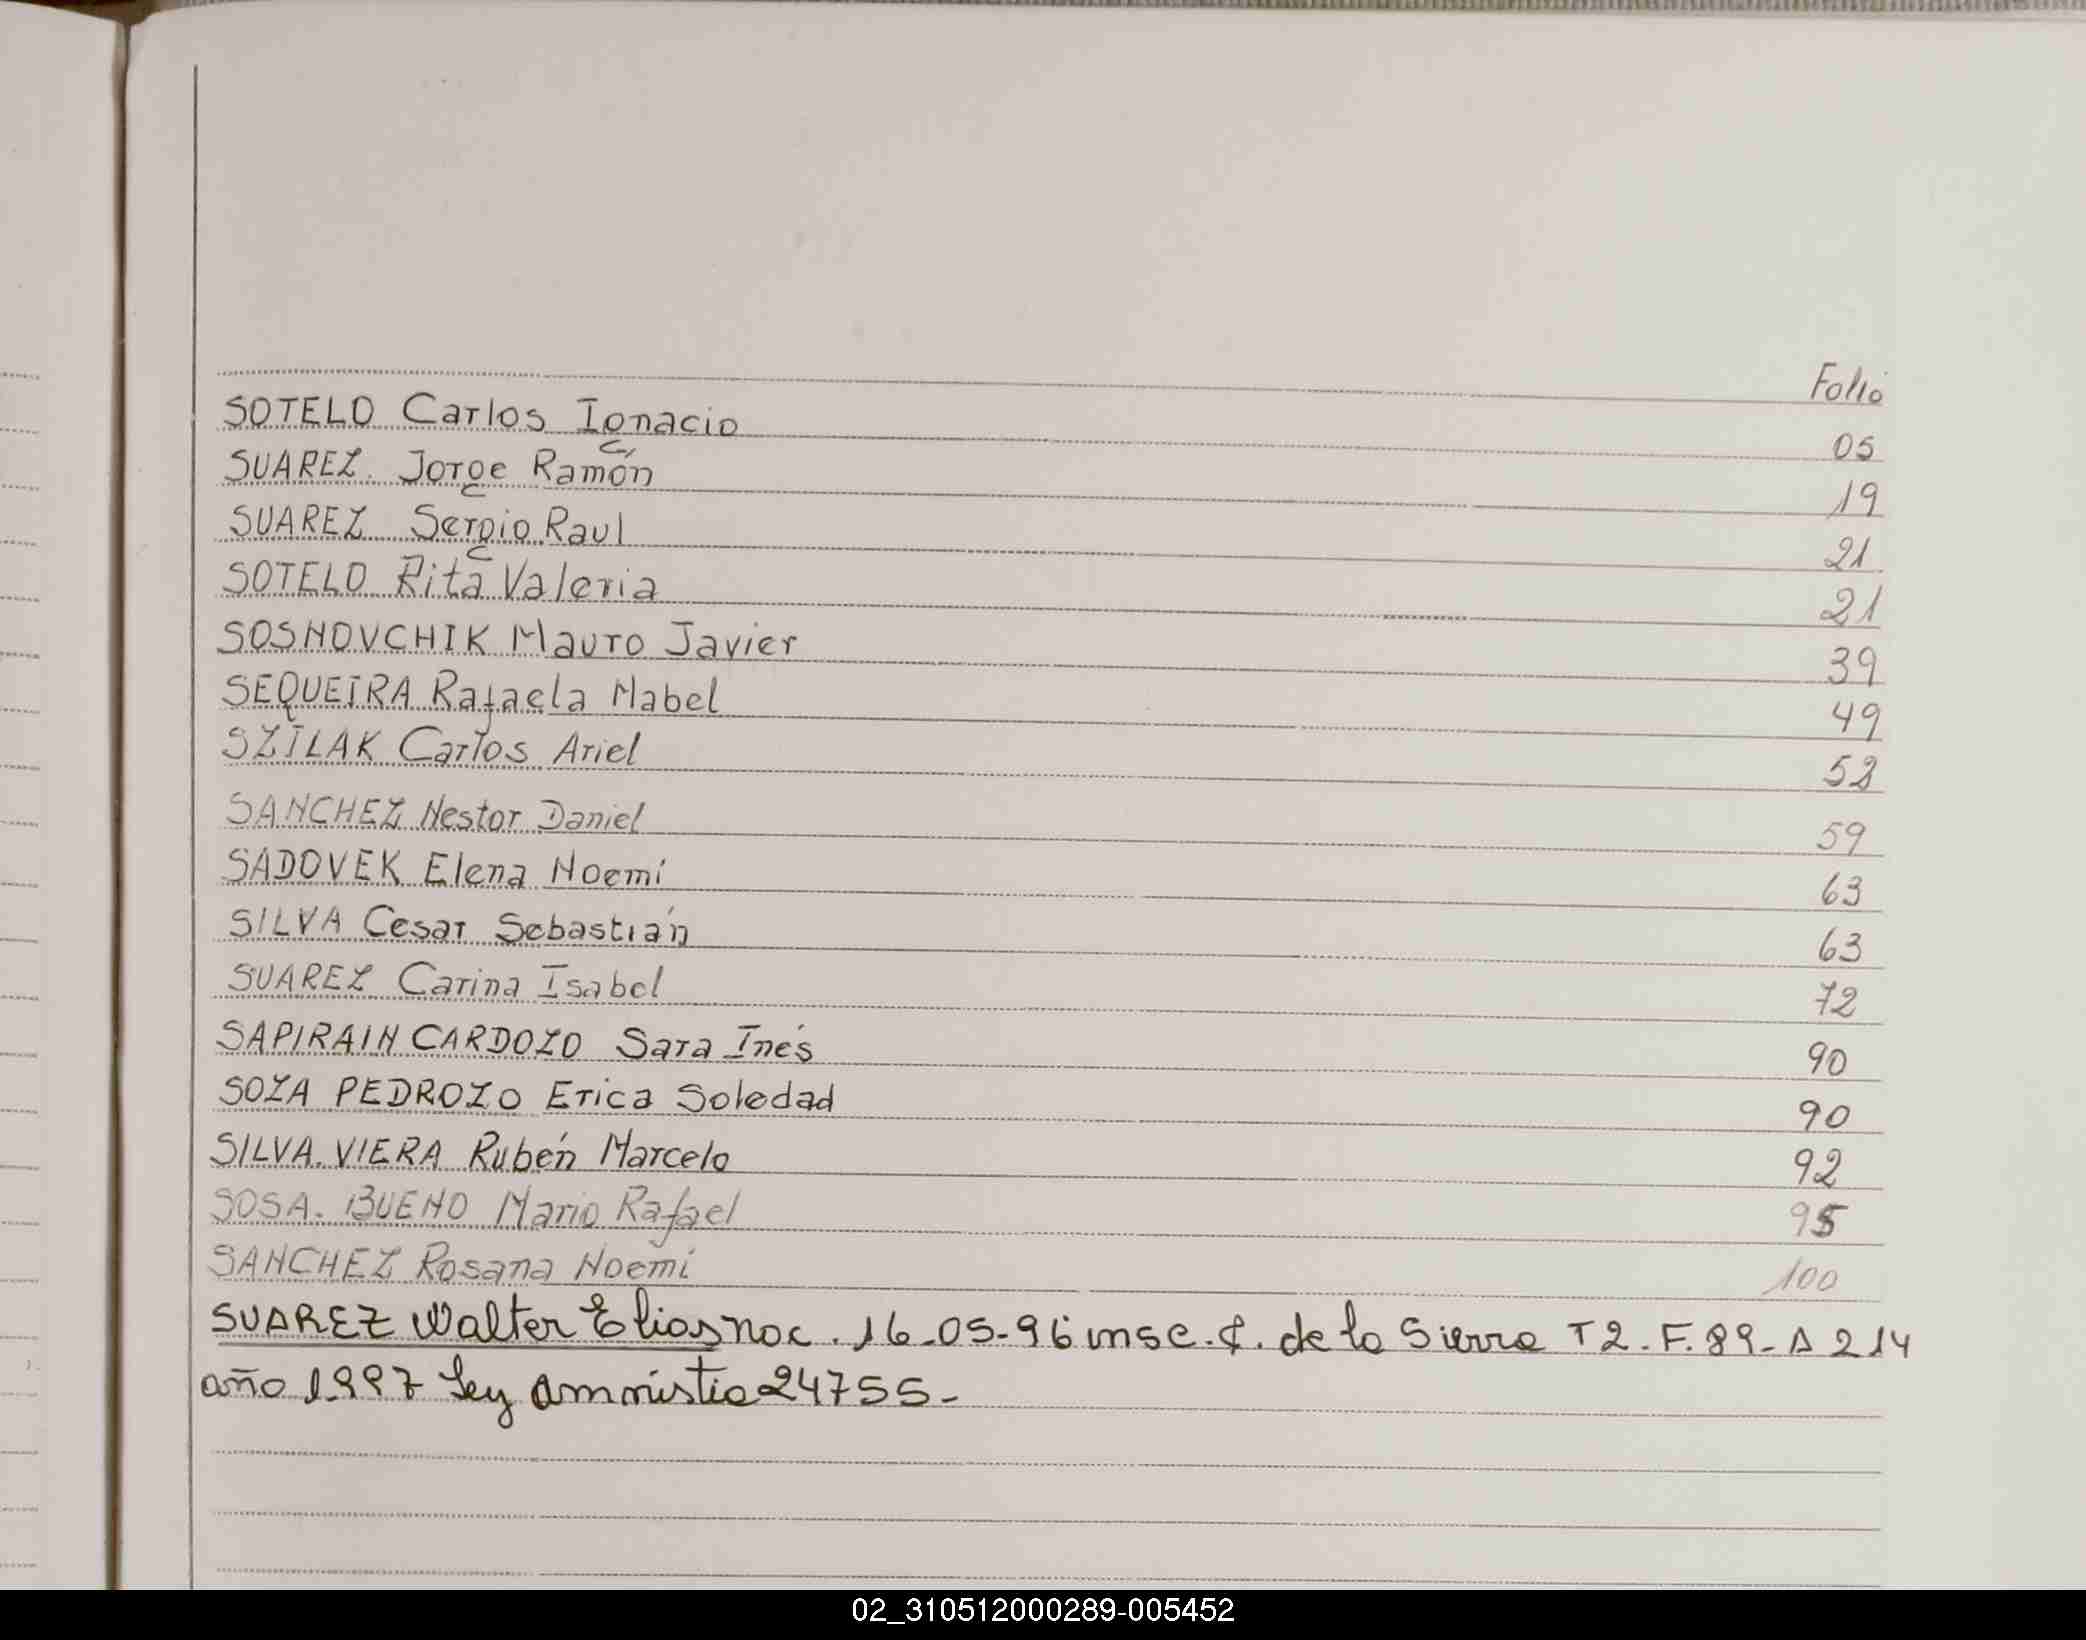 Folio
SOTELO Carlos Ignacio 05
SUAREZ. Jorge Ramón 19
SUAREZ Sergio Raul 21
SOTELO Rita Valeria 21
SOSNOVCHIK Mauro Javier 39
SEQUEIRA Rafaela Mabel 49
SZILAK Carlos Ariel 52
SANCHEZ Nestor Daniel 59
SADOVEK Elena Noemí 63
SILVA Cesar Sebastián 63
SUAREZ Carina Isabel 72
SAPIRAIN CARDOZO Sara Inés 90
SOZA PEDROZO Erica Soledad 90
SILVA. VIERA Rubén Marcelo 92
SOSA. BUENO Mario Rafael 95
SANCHEZ Rosana Noemí 100
SUAREZ Walter Elias nac. 16-05-96 insc. C. de la Sierra T2. F. 89- A 214
año 1997 Ley amnistia 24755-
02_310512000289-005452